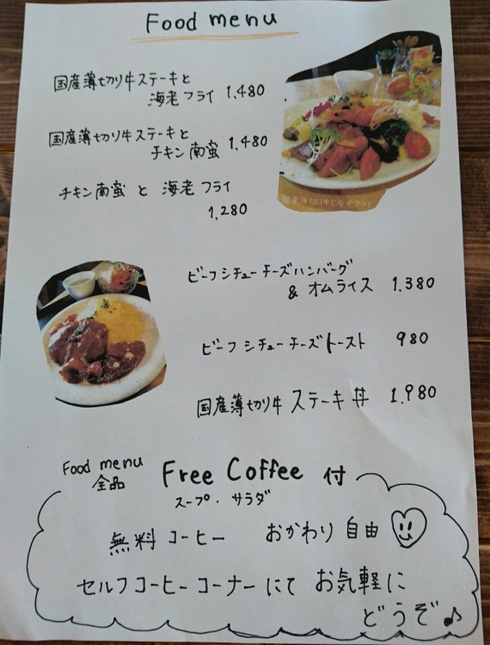 Food menu
国産薄切り牛ステーキと
海老フライ 1.480
国産薄切り牛ステーキと
チキン南蛮 1.480
チキン南蛮 と 海老フライ
1.280
国産薄切り牛と海老フライ
ビーフシチューチーズハンバーグ
& オムライス 1.380
ビーフシチューチーズトースト 980
国産薄切り牛 ステーキ丼 1.980
Food menu
全品
Free Coffee 付
スープ・サラダ
無料コーヒー おかわり自由
セルフコーヒーコーナーにて お気軽に
どうぞ♪